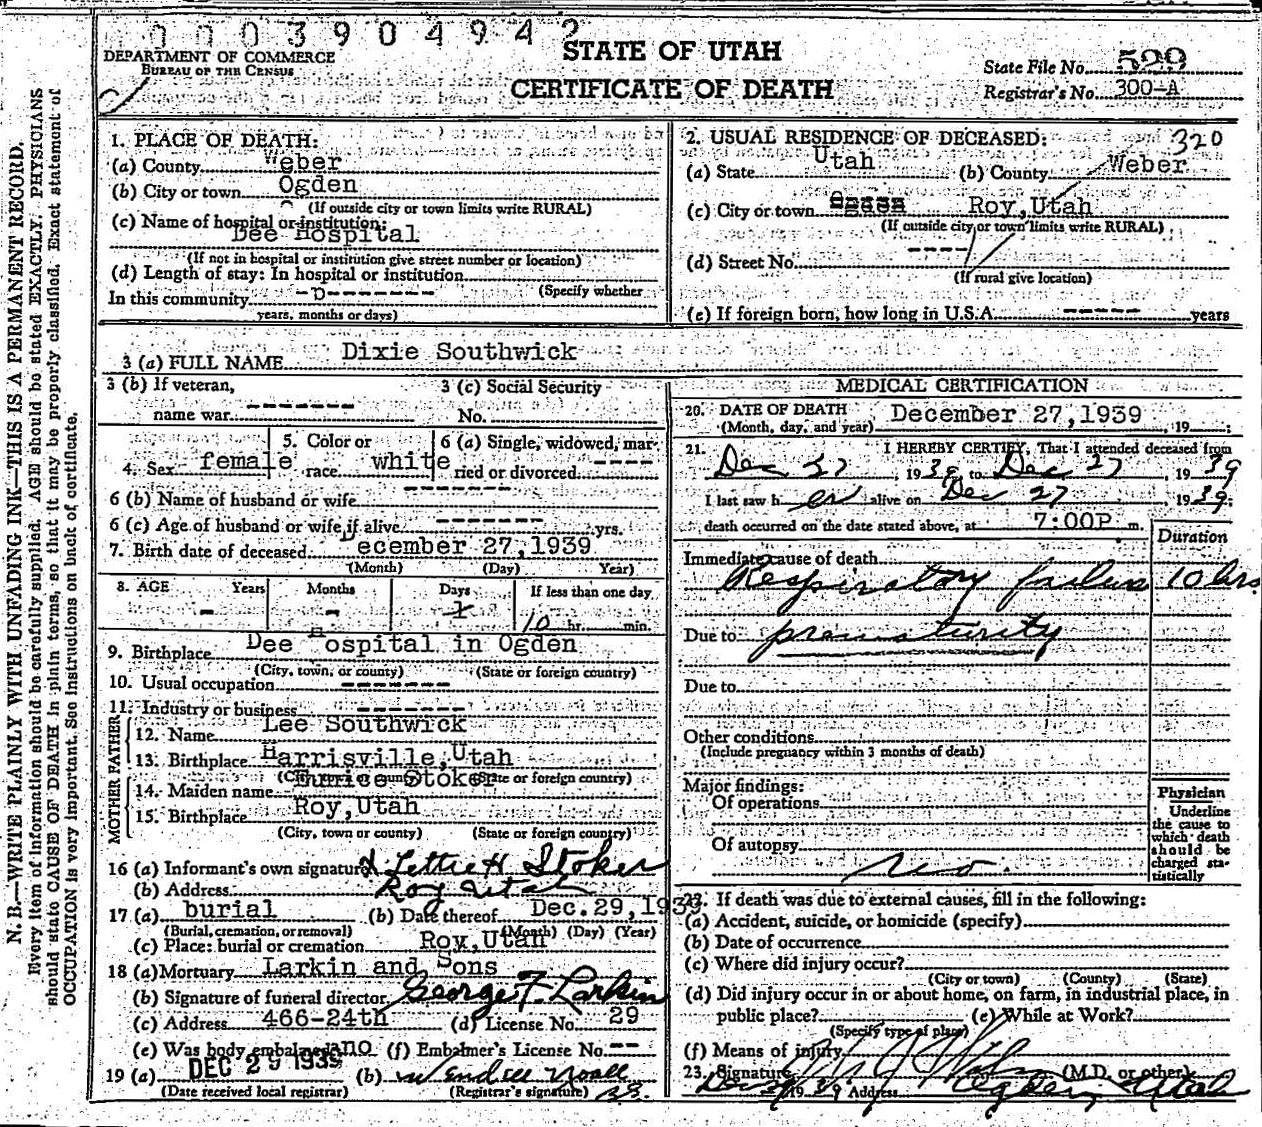 0003904942
DEPARTMENT OF COMMERCE
BUREAU OF THE CENSUS
STATE OF UTAH
CERTIFICATE OF DEATH
State File No. 529
Registrar's No. 300-A
1. PLACE OF DEATH:
(a) County Weber
(b) City or town Ogden
(If outside city or town limits write RURAL)
(c) Name of hospital or institution:
Dee Hospital
(If not in hospital or institution give street number or location)
(d) Length of stay: In hospital or institution
(Specify whether
In this community
years, months or days)
2. USUAL RESIDENCE OF DECEASED: 320
(a) State Utah (b) County Weber
(c) City or town Roy, Utah
(If outside city or town limits write RURAL)
(d) Street No. ----
(If rural give location)
(e) If foreign born, how long in U.S.A. ----- years
3 (a) FULL NAME Dixie Southwick
3 (b) If veteran, name war -------
3 (c) Social Security No.
4. Sex female
5. Color or race white
6 (a) Single, widowed, married or divorced ----
6 (b) Name of husband or wife -------
6 (c) Age of husband or wife if alive ------- yrs.
7. Birth date of deceased December 27,1939
(Month) (Day) Year)
8. AGE Years Months Days If less than one day
- - 1 10 hr. min.
9. Birthplace Dee Hospital in Ogden
(City, town, or county) (State or foreign country)
10. Usual occupation -------
11. Industry or business -------
FATHER
12. Name Lee Southwick
13. Birthplace Harrisville,Utah
(State or foreign country)
MOTHER
14. Maiden name Stoker
15. Birthplace Roy,Utah
(City, town or county) (State or foreign country)
16 (a) Informant's own signature Lettie H Stoker
(b) Address Roy Utah
17 (a) burial (b) Date thereof Dec.29,1939
(Burial, cremation, or removal) (Month) (Day) (Year)
(c) Place: burial or cremation Roy,Utah
18 (a) Mortuary Larkin and Sons
(b) Signature of funeral director George F. Larkin
(c) Address 466-24th (d) License No. 29
(e) Was body embalmed no (f) Embalmer's License No. --
19 (a) DEC 29 1939 (b) Wendell Noall
(Date received local registrar) (Registrar's signature)
MEDICAL CERTIFICATION
20. DATE OF DEATH December 27,1939
(Month, day, and year) , 19 ;
21. I HEREBY CERTIFY, That I attended deceased from
Dec 27, 1939 to Dec 27, 1939
I last saw her alive on Dec 27 1939;
death occurred on the date stated above, at 7:00P m.
Duration
Immediate cause of death
Respiratory failure 10 hrs.
Due to prematurity
Due to
Other conditions
(Include pregnancy within 3 months of death)
Major findings:
Of operations
Of autopsy
no.
Physician
Underline
the cause to
which death
should be
charged sta-
tistically
If death was due to external causes, fill in the following:
(a) Accident, suicide, or homicide (specify)
(b) Date of occurrence
(c) Where did injury occur?
(City or town) (County) (State)
(d) Did injury occur in or about home, on farm, in industrial place, in
public place? (e) While at Work?
(Specify type of place)
(f) Means of injury
23. Signature (M.D. or other)
1939 Address Ogden, Utah
N. B.—WRITE PLAINLY WITH UNFADING INK—THIS IS A PERMANENT RECORD.
Every item of information should be carefully supplied. AGE should be stated EXACTLY. PHYSICIANS
should state CAUSE OF DEATH in plain terms, so that it may be properly classified. Exact statement of
OCCUPATION is very important. See instructions on back of certificate.